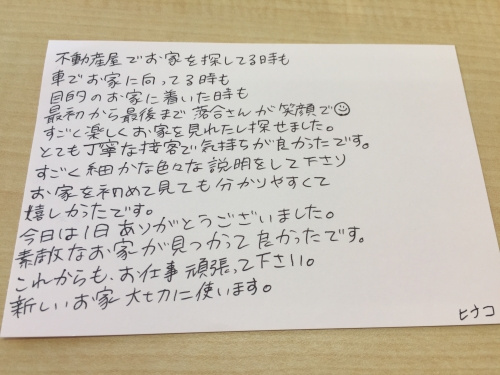 不動産屋でお家を探してる時も
車でお家に向ってる時も
目的のお家に着いた時も
最初から最後まで落合さんが笑顔で☺
すごく楽しくお家を見れたし探せました。
とても丁寧な接客で気持ちが良かったです。
すごく細かな色々な説明をして下さり
お家を初めて見ても分かりやすくて
嬉しかったです。
今日は1日ありがとうございました。
素敵なお家が見つかって良かったです。
これからも、お仕事頑張って下さい。
新しいお家大切に使います。
ヒナコ